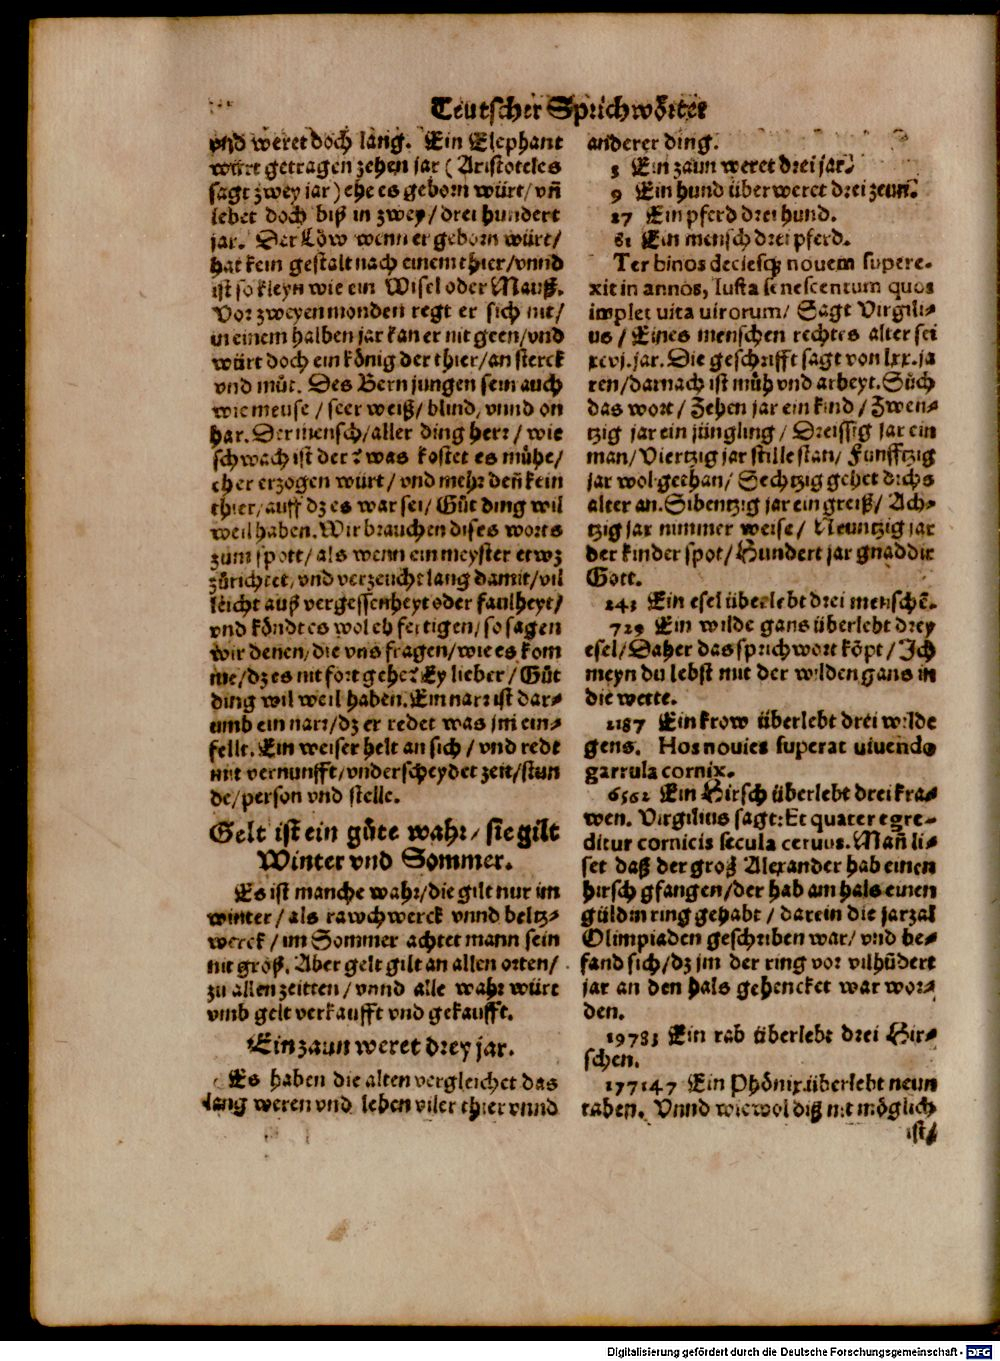 Teutscher Sprichwörter
vnd weret doch lang. Ein Elephant
würt getragen zehen jar (Aristoteles
sagt zwey jar) ehe es geborn würt/ vñ
lebet doch biß in zwey/ drei hundert
jar. Der Löw wenn er geborn würt/
hat kein gestalt nach einem thier/ vnnd
ist so kleyn wie ein Wisel oder Mauß.
Vor zweyen monden regt er sich nit/
in einem halben jar kan er nit geen/ vnd
würt doch ein künig der thier/ an sterck
vnd müt. Des Bern jungen sein auch
wie meuse / seer weiß/ blind, vnnd on
har. Der mensch/ aller ding herr / wie
schwach ist der? was kostet es mühe/
eh er erzogen würt/ vnd mehr deñ kein
thier/ auff dz es war sei/ Güt ding wil
weil haben. Wir brauchen dises worts
zum spott/ als wenn ein meyster etwz
zürichtet, vnd verzeucht lang damit/ vil
leicht auß vergessenheyt oder faulheyt/
vnd köndt es wol eh fertigen/ so sagen
wir denen, die vns fragen/ wie es kom
me/ dz es nit fort gehe? Ey lieber / Güt
ding wil weil haben. Ein narr ist dar⸗
umb ein narr/ dz er redet was jm ein⸗
fellt. Ein weiser helt an sich / vnd redt
mit vernunfft/ vnderscheydet zeit/ stun
de/ person vnd stelle.
Gelt ist ein güte wahr/ sie gilt
Winter vnd Sommer.
Es ist manche wahr/ die gilt nur im
winter/ als rawchwerck vnnd beltz⸗
werck / im Sommer achtet mann sein
nit groß. Aber gelt gilt an allen orten/
zu allen zeitten / vnnd alle wahr würt
vmb gelt verkaufft vnd gekaufft.
Ein zaun weret drey jar.
Es haben die alten vergleichet das
lang weren vnd leben viler thier vnnd
anderer ding.
3 Ein zaun weret drei jar.
9 Ein hund überweret drei zeun.
27 Ein pferd drei hund.
81 Ein mensch drei pferd.
Ter binos deciesqꝫ nouem supere-
xit in annos, Iusta senescentum quos
implet uita uirorum/ Sagt Virgili⸗
us / Eines menschen rechtes alter sei
xcvj. jar. Die geschrifft sagt von lxx. ja
ren/ darnach ist müh vnd arbeyt. Süch
das wort / Zehen jar ein kind / Zwen⸗
tzig jar ein jüngling / Dreissig jar ein
man/ Viertzig jar stille stan/ Funfftzig
jar wol gethan/ Sechtzig gehet dichs
alter an. Sibentzig jar ein greiß/ Ach⸗
tzig jar nimmer weise/ Neuntzig jar
der kinder spot/ Hundert jar gnad dir
Gott.
243 Ein esel überlebt drei menschē.
729 Ein wilde gans überlebt drey
esel/ Daher das sprichwort köpt / Ich
meyn du lebst mit der wilden gans in
die wette.
2187 Ein krow überlebt drei wilde
gens. Hos nouies superat uiuendo
garrula cornix.
6562 Ein Hirsch überlebt drei kra⸗
wen. Virgilius sagt: Et quater egre-
ditur cornicis secula ceruus. Mañ li⸗
set daß der groß Alexander hab einen
hirsch gfangen/ der hab am hals einen
güldin ring gehabt / darein die jarzal
Olimpiaden geschriben war/ vnd be⸗
fand sich/ dz jm der ring vor vilhūdert
jar an den hals gehencket war wor⸗
den.
19783 Ein rab überlebt drei Hir⸗
schen.
177147 Ein Phönix überlebt neun
raben. Vnnd wiewol diß nit möglich
ist/
Digitalisierung gefördert durch die Deutsche Forschungsgemeinschaft - DFG